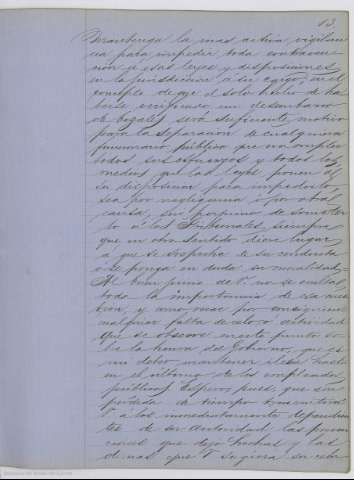 13
mantenga la mas activa vigilan
cia para impedir toda contraven
cion a esas leyes y disposiciones
en la jurisdiccion a su cargo, en el
concepto de que el solo hecho de ha
berse verificado un desembarco
de bozales será suficiente motivo
para la separacion de cualquiera
funcionario público que no emplee
todos sus esfuerzos y todos los
medios que las leyes ponen a
su disposicion para impedirlo,
sea por negligencia o por otra
causa, sin perjuicio de someter
lo a los Tribunales siempre
que en otro sentido diere lugar
a que se sospeche de su conducta
o se ponga en duda su moralidad.
Al buen juicio de V. no se oculta
toda la importancia de esa cues
tion y como por consiguiente
cualquiera falta de celo o actividad
que se observe en este punto so
bre la honra del Gobierno que es
un deber mantener ilesa hasta
en el último de los empleados
públicos. Espero, pues, que sin
pérdida de tiempo transmitirá
V. a los inmediatamente dependien
tes de su Autoridad las preven
ciones que dejo hechas y las
demas que V. sugiera su celo